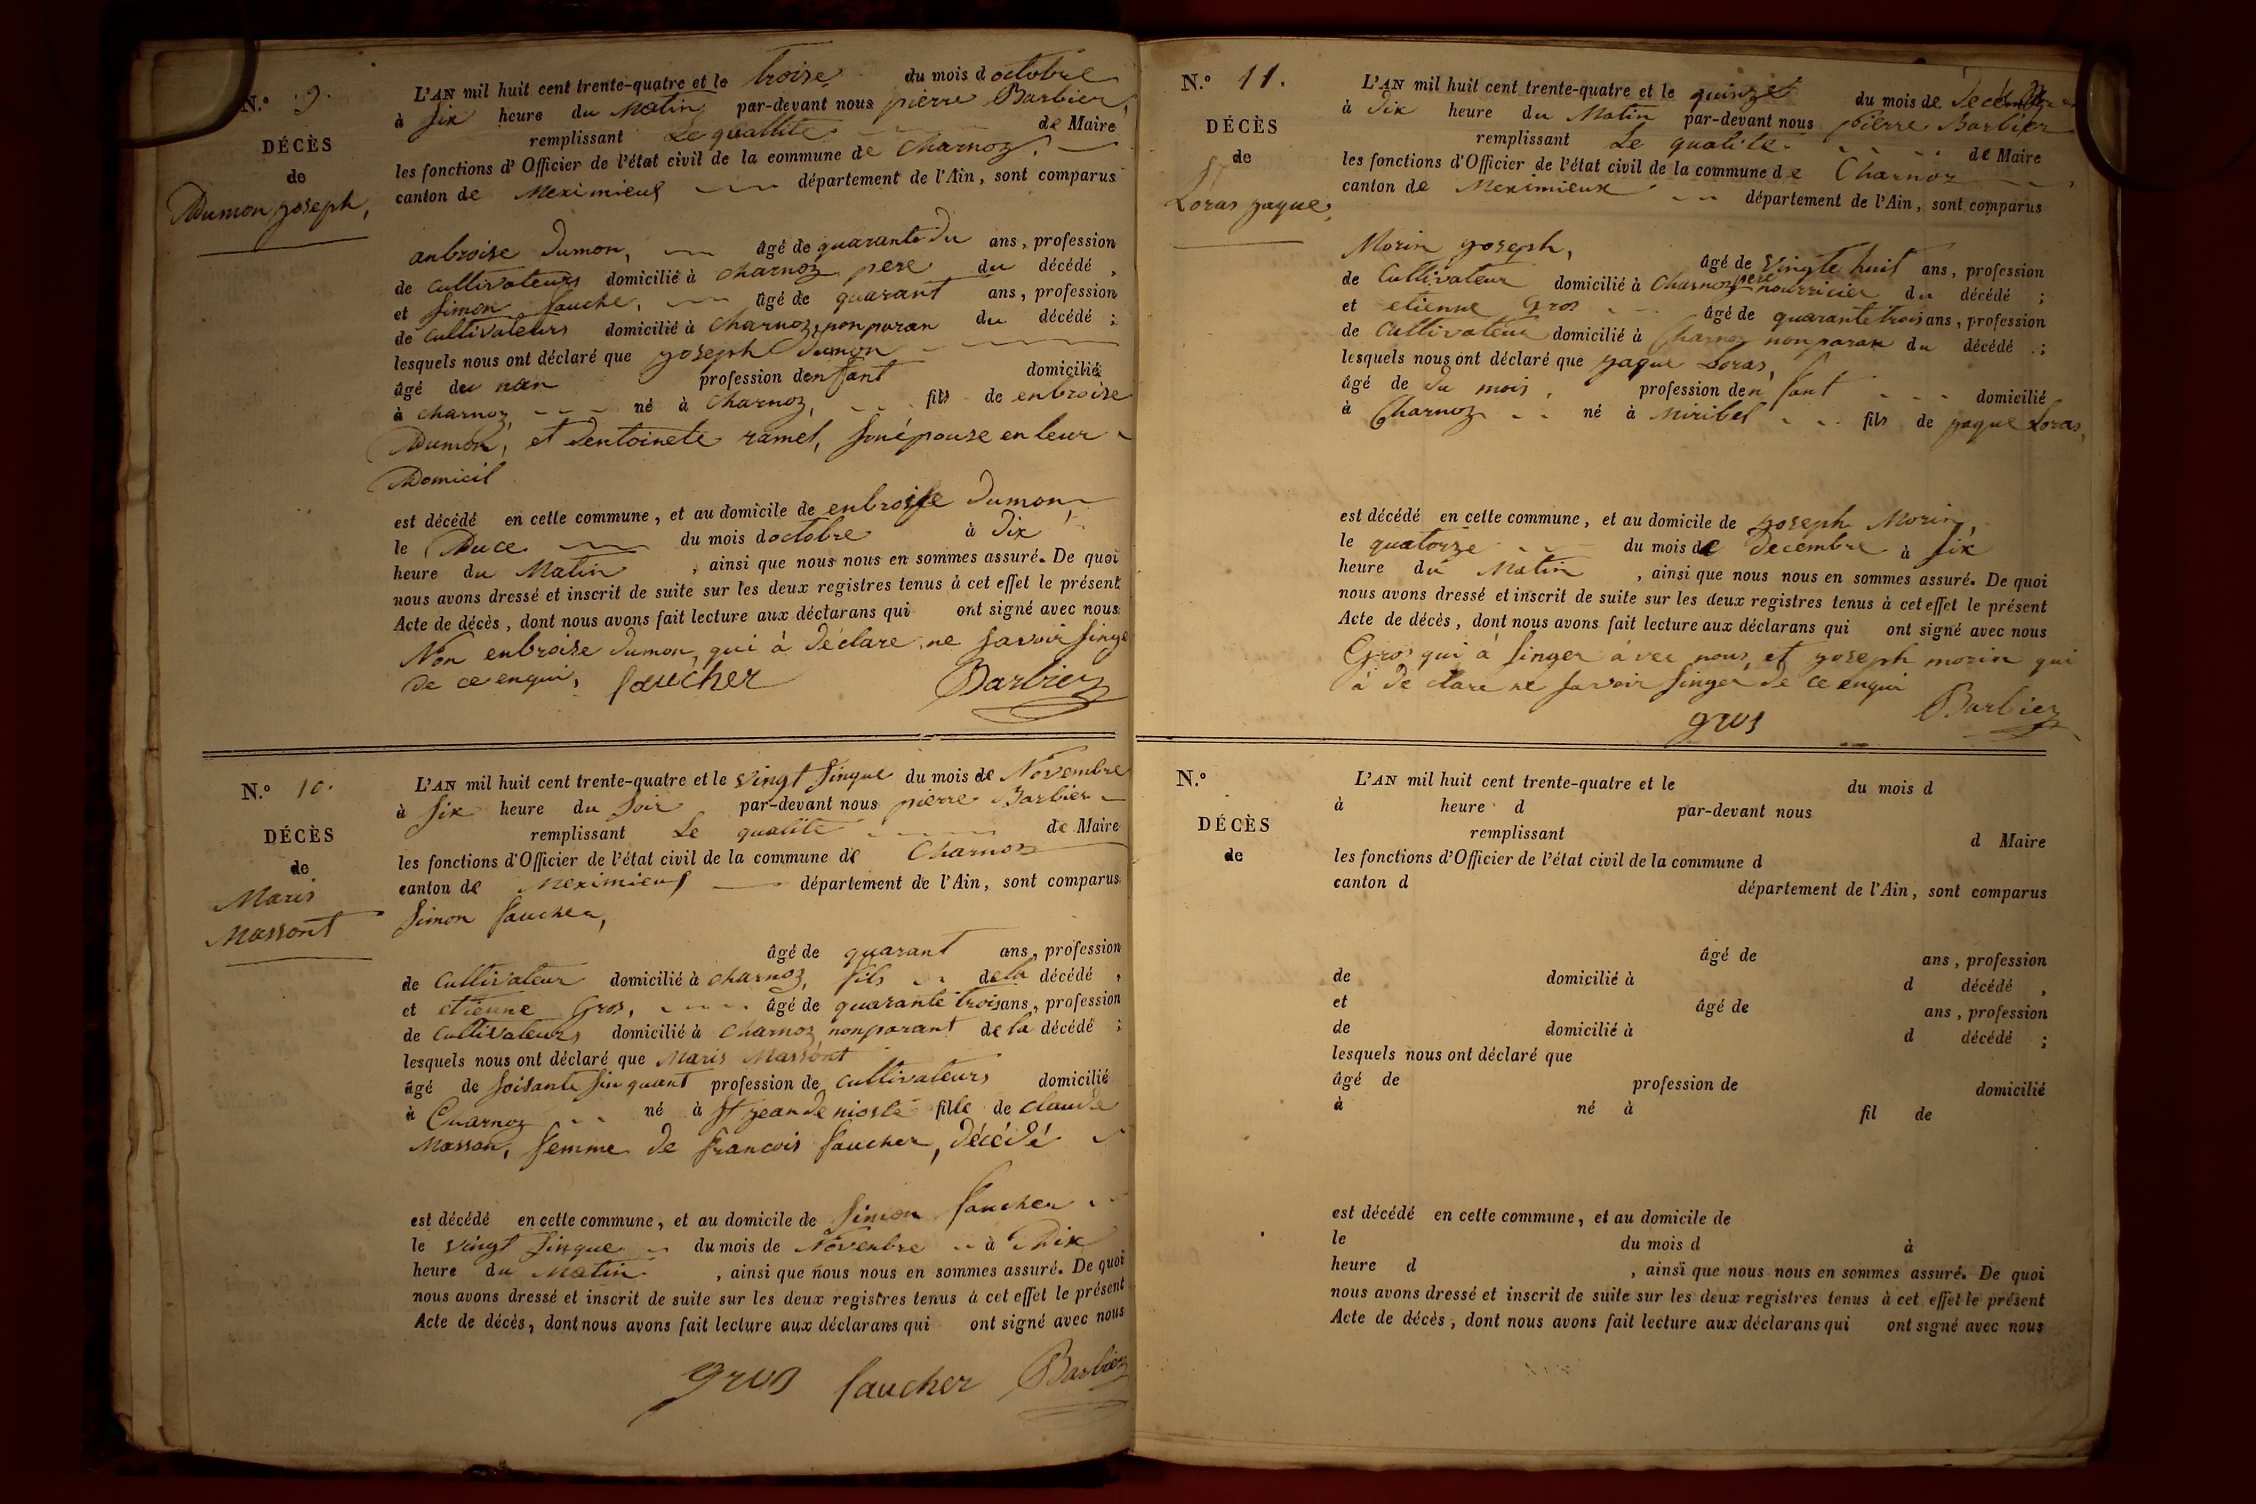 N.º 9.
DÉCÈS
de
Dumon joseph,
L'AN mil huit cent trente-quatre et le troise du mois d octobre
à six heure du Matin par-devant nous pierre Barbier,
remplissant Le quallite de Maire
les fonctions d'Officier de l'état civil de la commune de Charnoz.
canton de Meximieus département de l'Ain, sont comparus
anbroise Dumon, âgé de quarante du ans, profession
de Cultivateurs domicilié à Charnoz pere du décédé,
et simon fauche, âgé de quarant ans, profession
de Cultivateurs domicilié à Charnoz, non paran du décédé;
lesquels nous ont déclaré que joseph Dumon
âgé deu nan profession denfant domicilié
à charnoz, né à Charnoz, fils de enbroise
Dumon, et dentoinete ramel, son épouse en leur
Domicil
est décédé en cette commune, et au domicile de enbroise Dumon,
le Duce du mois d octobre à Dix
heure du Matin, ainsi que nous nous en sommes assuré. De quoi
nous avons dressé et inscrit de suite sur les deux registres tenus à cet effet le présent
Acte de décès, dont nous avons fait lecture aux déclarans qui ont signé avec nous
Non enbroise Dumon, qui à déclare ne savoir singe
de ce enqui, faucher Barbier
N.º 10.
DÉCÈS
de
Maris
Massont
L'AN mil huit cent trente-quatre et le vingt sinque du mois de Novembre
à six heure du soir par-devant nous pierre Barbier
remplissant Le qualite de Maire
les fonctions d'Officier de l'état civil de la commune de Charnoz
canton de Meximieus département de l'Ain, sont comparus
simon faucher,
âgé de quarant ans, profession
de Cultivateur domicilié à charnoz, fils de la décédé,
et etienne Gros, âgé de quarante trois ans, profession
de Cultivateurs domicilié à Charnoz nonparant de la décédé;
lesquels nous ont déclaré que Maris Massont
âgé de soisante sinquant profession de Cultivateurs domicilié
à Charnoz né à st jean de nioste fille de claude
Masson, femme de francois faucher, décédé
est décédé en cette commune, et au domicile de simon faucher
le vingt sinque du mois de Novenbre à Dix
heure du Matin, ainsi que nous nous en sommes assuré. De quoi
nous avons dressé et inscrit de suite sur les deux registres tenus à cet effet le présent
Acte de décès, dont nous avons fait lecture aux déclarans qui ont signé avec nous
gros faucher Barbier
N.º 11.
DÉCÈS
de
Loras jaque,
L'AN mil huit cent trente-quatre et le quinze du mois de Decembre
à Dix heure du Matin par-devant nous pierre Barbier
remplissant Le qualite de Maire
les fonctions d'Officier de l'état civil de la commune de Charnoz
canton de Meximieux département de l'Ain, sont comparus
Morin joseph,
âgé de vingte huit ans, profession
de Cultivateur domicilié à Charnoz pere nourricier du décédé;
et etienne Gros âgé de quarante trois ans, profession
de Cultivateur domicilié à Charnoz non paran du décédé;
lesquels nous ont déclaré que jaque Loras,
âgé de du mois, profession denfant domicilié
à Charnoz né à Miribel fils de jaque Loras,
est décédé en cette commune, et au domicile de joseph Morin,
le quatorze du mois de Decembre à six
heure du Matin, ainsi que nous nous en sommes assuré. De quoi
nous avons dressé et inscrit de suite sur les deux registres tenus à cet effet le présent
Acte de décès, dont nous avons fait lecture aux déclarans qui ont signé avec nous
Gros qui à singer avec nous et joseph morin qui
à de clare ne savoir singer de ce enqui
gros Barbier
N.º
DÉCÈS
de
L'AN mil huit cent trente-quatre et le du mois d
à heure d par-devant nous
remplissant d Maire
les fonctions d'Officier de l'état civil de la commune d
canton d département de l'Ain, sont comparus
âgé de ans, profession
de domicilié à d décédé,
et âgé de ans, profession
de domicilié à d décédé;
lesquels nous ont déclaré que
âgé de profession de domicilié
à né à fil de
est décédé en cette commune, et au domicile de
le du mois d à
heure d , ainsi que nous nous en sommes assuré. De quoi
nous avons dressé et inscrit de suite sur les deux registres tenus à cet effet le présent
Acte de décès, dont nous avons fait lecture aux déclarans qui ont signé avec nous